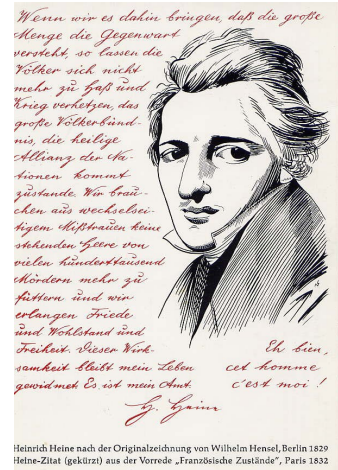 Wenn wir es dahin bringen, daß die große
Menge die Gegenwart
versteht, so lassen die
Völker sich nicht
mehr zu Haß und
Krieg verhetzen, das
große Völkerbünd-
nis, die heilige
Allianz der Na-
tionen kommt
zustande. Wir brau-
chen aus wechselsei-
tigem Mißtrauen keine
stehenden Heere von
vielen hunderttausend
Mördern mehr zu
füttern und wir
erlangen Friede
und Wohlstand und
Freiheit. Dieser Wirk-
samkeit bleibt mein Leben
gewidmet. Es ist mein Amt.
H. Heine
Eh bien,
cet homme
c'est moi !
Heinrich Heine nach der Originalzeichnung von Wilhelm Hensel, Berlin 1829
Heine-Zitat (gekürzt) aus der Vorrede „Französische Zustände", Paris 1832